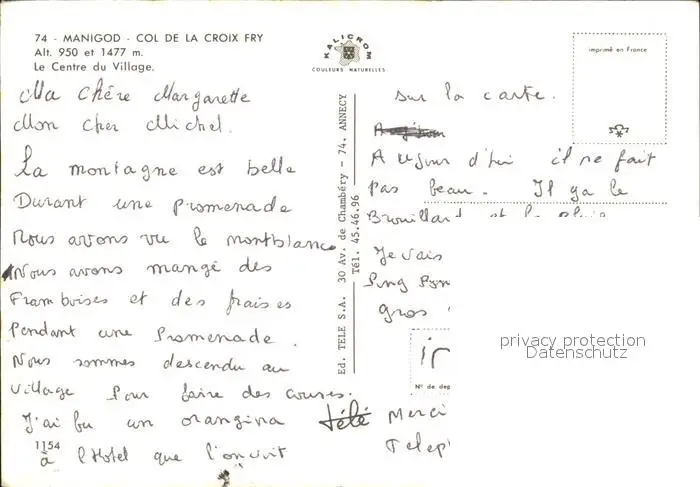 74 - MANIGOD - COL DE LA CROIX FRY
Alt. 950 et 1477 m.
Le Centre du Village.
KALICROM
COULEURS NATURELLES
imprimé en France
Ma Chère Margarette
Mon cher Michel.
La montagne est belle
Durant une promenade
Nous avons vu le montblanc
Nous avons mangé des
Framboises et des fraises
Pendant une Promenade.
Nous sommes descendu au
village Pour faire des courses.
J'ai bu un orangina
1154
à l'Hotel que l'on voit
Ed. TELE S.A. 30 Av. de Chambéry - 74. ANNECY
Tél. 45.46.96
sur la carte.
Aujour d'hui il ne fait
pas beau. Il ya le
Brouillard et la pluie
Je vais
Ping Pon
gros
N° de dep
télé Merci
Telep
privacy protection
Datenschutz